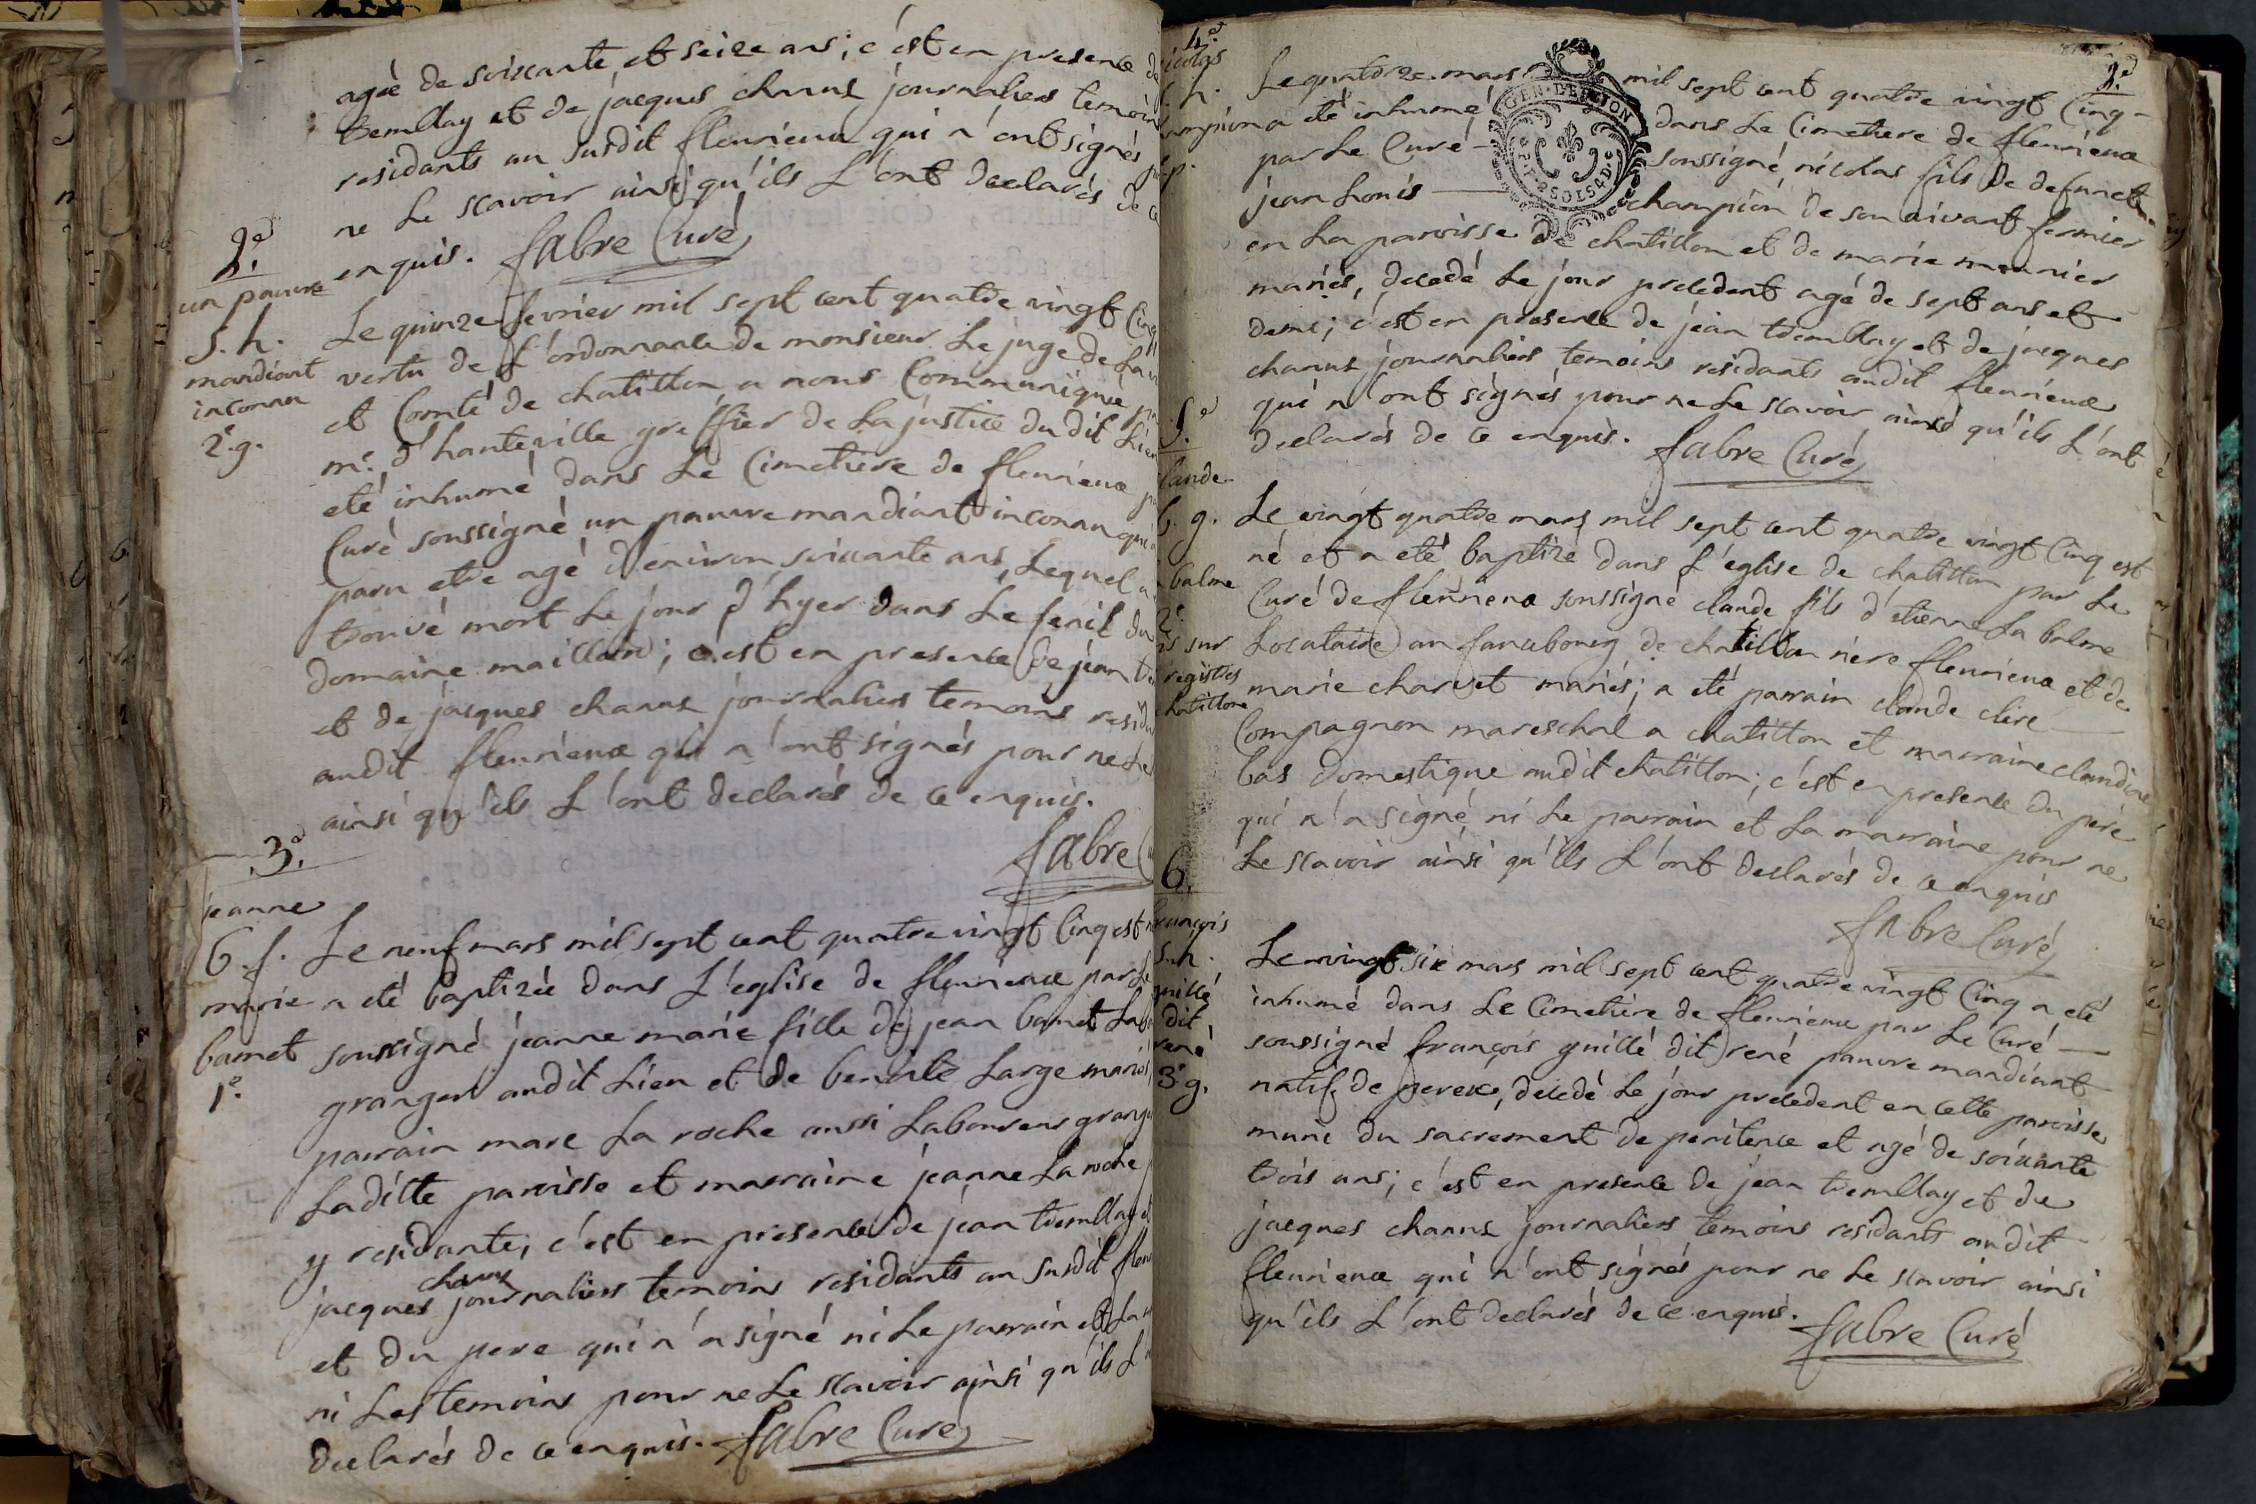 agée de soixante et seize ans; c'est en presence de
tremblay et de jacques chanut journaliers temoins
residants au susdit fleurieux qui n'ont signés
ne le scavoir ainsi qu'ils l'ont declarés de ce
enquis. fabre Curé
2e.
un pauvre
s. h.
mandiant
inconnu
2e. g.
Le quinze fevrier mil sept cent quatre vingt Cinq
vertu de l'ordonnance de monsieur Le juge de La
et Comté de chatillon a nous Communiqué
me. d'hauteville greffier de La justice du dit Lieu
eté inhumé dans Le Cimetiere de fleurieux
Curé soussigné un pauvre mandiant inconnu qui
paru etre agé d'environ soixante ans, Lequel
trouvé mort Le jour d'hyer dans Le fenil du
domaine maillan; c'est en presence de jean
et de jacques chanut journaliers temoins
audit fleurieux qui n'ont signés pour ne Le
ainsi qu'ils L'ont declarés de ce enquis.
fabre
3e.
jeanne
b. f.
marie
bamet
1e.
Le neuf mars mil sept cent quatre vingt Cinq est
a eté baptizée dans L'église de fleurieux par Le
soussigné jeanne marie fille de jean bamet
granger audit Lieu et de benoite Large mariés
parrain marc La roche aussi Laboureur
Laditte paroisse et marraine jeanne La roche
y residante; c'est en presence de jean tremblay et
jacques chanut journaliers temoins residants au susdit
et du pere qui n'a signé ni Le parrain et La
ni Les temoins pour ne Le scavoir ainsi qu'ils L'
declarés de ce enquis. fabre Curé
4e.
2e.
Le quatorze mars mil sept cent quatre vingt Cinq
a eté inhumé dans Le Cimetiere de fleurieux
par Le Curé soussigné, nicolas fils de defunct
jean Louis champion de son vivant fermier
GEN·DE·DIJON
2 SOLS 4 D
en La paroisse de chatillon et de marie meunier
mariés, decedé Le jour precedent agé de sept ans et
demi; c'est en presence de jean tremblay et de jacques
chanut journaliers temoins residants audit fleurieux
qui n'ont signés pour ne Le scavoir ainsi qu'ils L'ont
declarés de ce enquis. fabre Curé
5e.
b. g.
balme
2e.
sur
registres
chatillon
Le vingt quatre mars mil sept cent quatre vingt Cinq est
né et a eté baptizé dans L'église de chatillon par Le
Curé de fleurieux soussigné claude fils d'etienne La balme
Locataire au fauxbourg de chatillon riere fleurieux et de
marie charvet mariés; a eté parrain claude clere
Compagnon mareschal a chatillon et marraine claudine
bas domestique audit chatillon; c'est en presence du pere
qui n'a signé ni Le parrain et La marraine pour ne
Le scavoir ainsi qu'ils L'ont declarés de ce enquis
fabre Curé
6.
françois
s. h.
guillé
dit
rené
3e g.
Le vingt six mars mil sept cent quatre vingt Cinq a eté
inhumé dans Le Cimetiere de fleurieux par Le Curé
soussigné françois guillé dit rené pauvre mandiant
natif de perex, decedé Le jour precedent en cette paroisse
muni du sacrement de penitence et agé de soixante
trois ans; c'est en presence de jean tremblay et de
jacques chanut journaliers temoins residants audit
fleurieux qui n'ont signés pour ne Le scavoir ainsi
qu'ils L'ont declarés de ce enquis.
fabre Curé